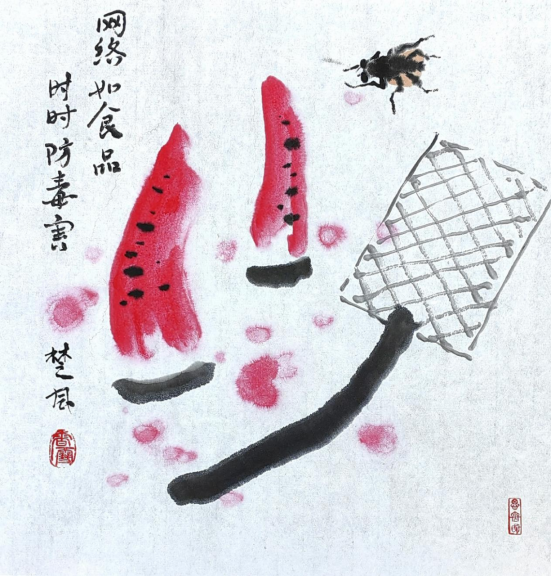 网络如食品
时时防毒害
楚风